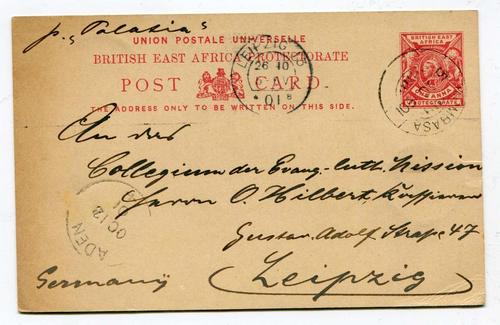 p. "Palatia"
UNION POSTALE UNIVERSELLE
BRITISH EAST AFRICA PROTECTORATE
POST CARD
THE ADDRESS ONLY TO BE WRITTEN ON THIS SIDE.
LEIPZIG
26 10
01
BRITISH EAST AFRICA
ONE ANNA
PROTECTORATE
An das
Collegium der Evang-luth. Mission
Herrn O. Hilbert,
Gustav Adolf Straße 47
Leipzig
Germany
ADEN
OC 12
01